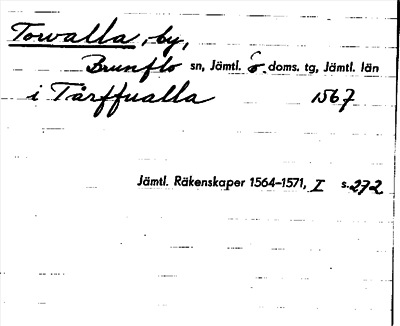 Torvalla, by,
Brunflo sn, Jämtl. ö. doms. tg, Jämtl. län
i Tårffualla 1567
Jämtl. Räkenskaper 1564–1571, I s. 272